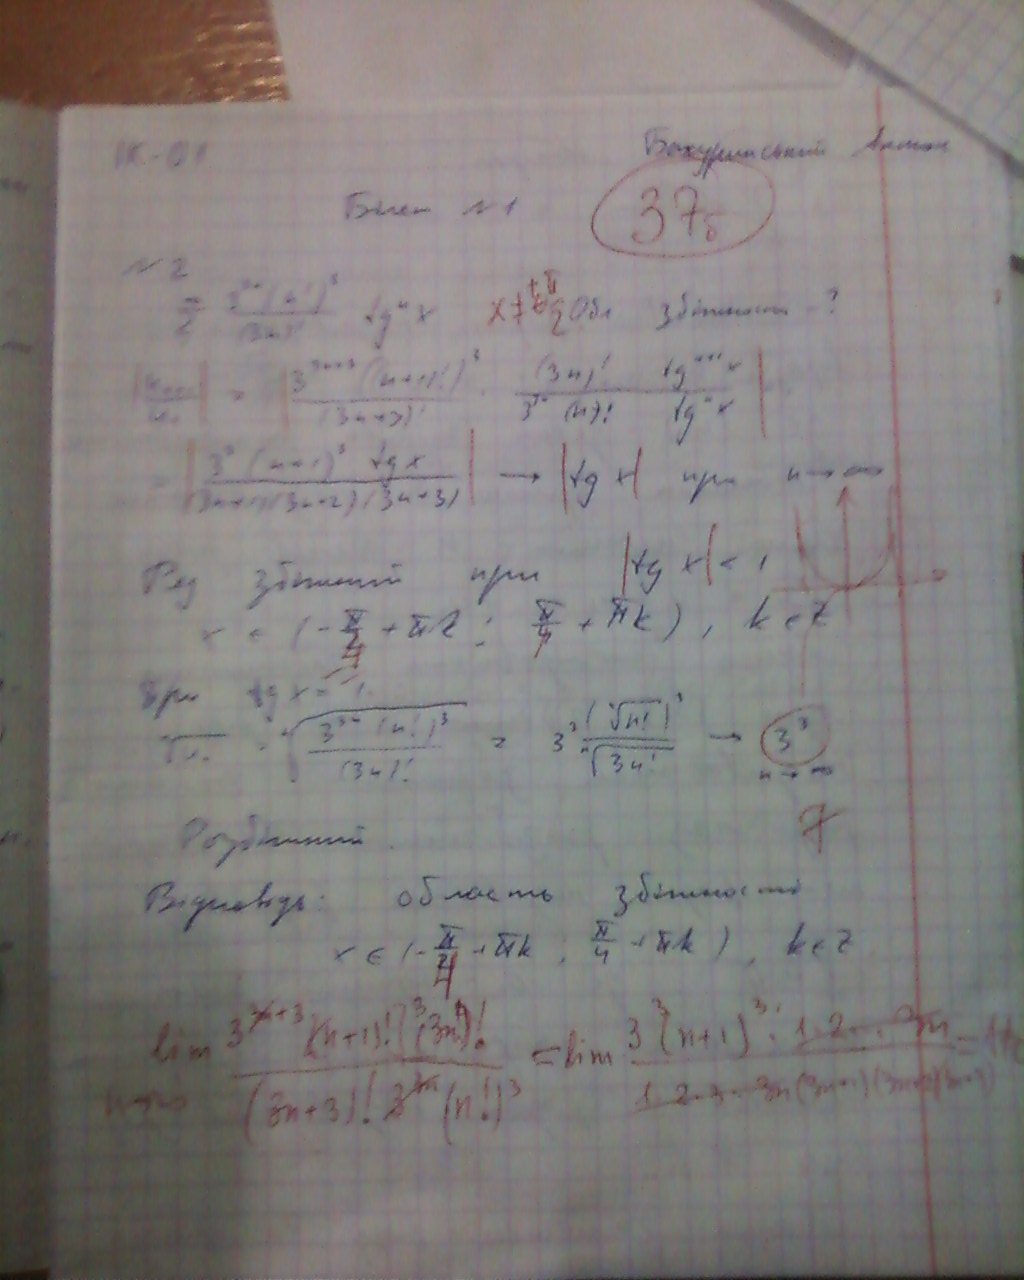 ІК-01
Білет №1
37б
№2
∑ 3³ⁿ(n!)³ / (3n)! tgⁿ x x ≠ Обл збіжності - ?
|uₙ₊₁ / uₙ| = |3³ⁿ⁺³ ((n+1)!)³ / (3n+3)! · (3n)! / 3³ⁿ (n)! tgⁿ⁺¹ x / tgⁿ x|
= |3³ (n+1)³ tg x / (3n+1)(3n+2)(3n+3)| → |tg x| при n → ∞
Ряд збіжний при |tg x| < 1
x ∈ (-π/4 + πk ; π/4 + πk), k ∈ Z
При tg x = 1
ⁿ√uₙ = ⁿ√(3³ⁿ (n!)³ / (3n)!) = 3³ (ⁿ√n!)³ / ⁿ√3n! → 3³
n → ∞
Розбіжний.
Відповідь: область збіжності
x ∈ (-π/4 + πk ; π/4 + πk), k ∈ Z
lim n→∞ 3³ⁿ⁺³ [(n+1)!]³ (3n)! / (3n+3)! 3³ⁿ (n!)³ = lim 3³(n+1)³ · 1·2·...·3n / 1·2·3...3n(3n+1)(3n+2)(3n+3) =